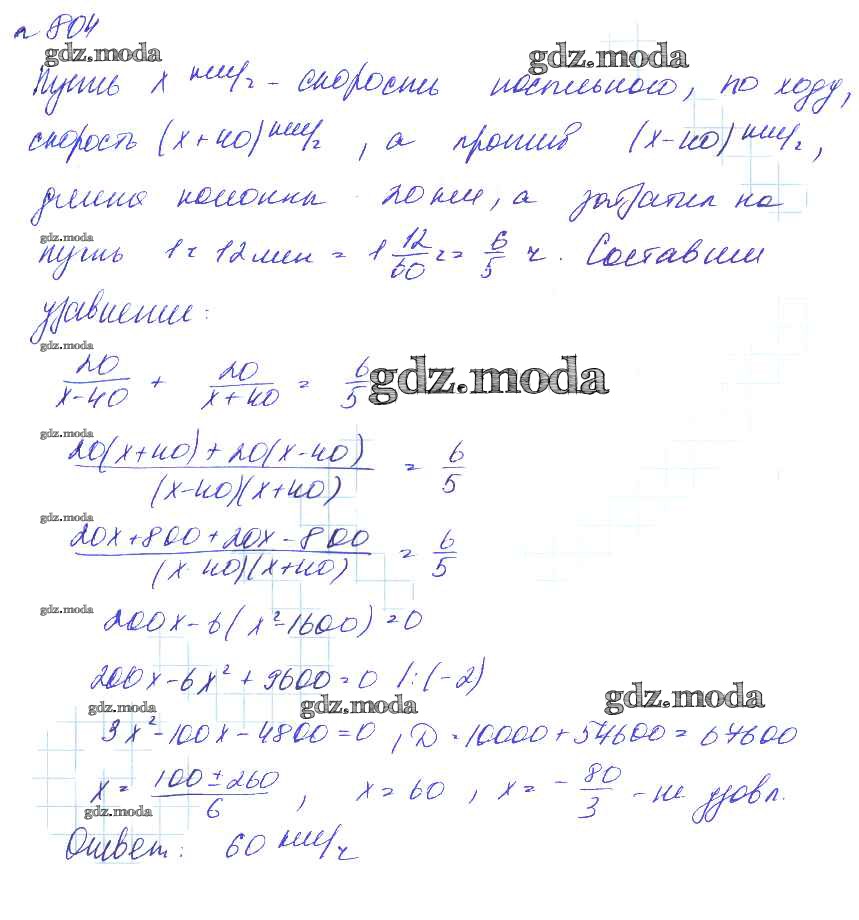 № 804
gdz.moda gdz.moda
Пусть x км/ч - скорость посыльного, по ходу,
скорость (x+40) км/ч, а против (x-40) км/ч,
длина колонны 20 км, а затратил на
gdz.moda
путь 1ч 12 мин = 1 12/60 ч = 6/5 ч. Составим
уравнение:
gdz.moda
20/(x-40) + 20/(x+40) = 6/5 gdz.moda
gdz.moda
(20(x+40)+20(x-40))/((x-40)(x+40)) = 6/5
gdz.moda
(20x+800+20x-800)/((x 40)(x+40)) = 6/5
gdz.moda
200x-6(x²-1600)=0
200x-6x²+9600=0 /:(-2)
gdz.moda gdz.moda gdz.moda
3x²-100x-4800=0, D=10000+57600=67600
x = (100±260)/6, x=60, x= -80/3 -не удовл.
gdz.moda
Ответ: 60 км/ч